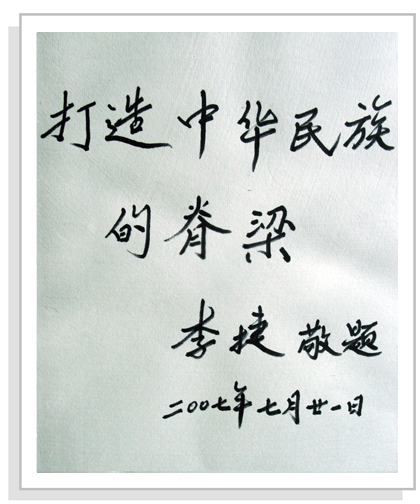 打造中华民族
的脊梁
李捷 敬题
二〇〇七年七月廿一日